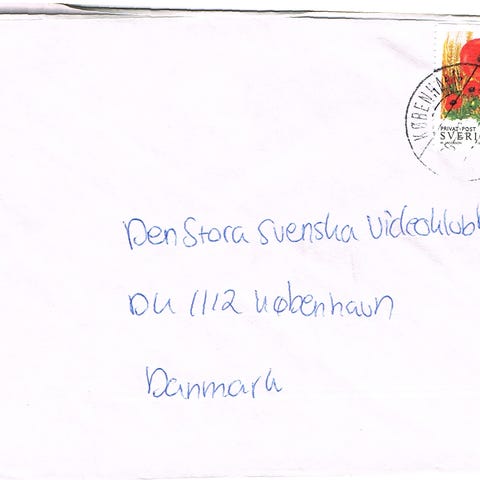 KØBENHAVN
PRIVAT·POST
SVERIGE
Den Stora Svenska Videoklubb
DK 1112 København
Danmark